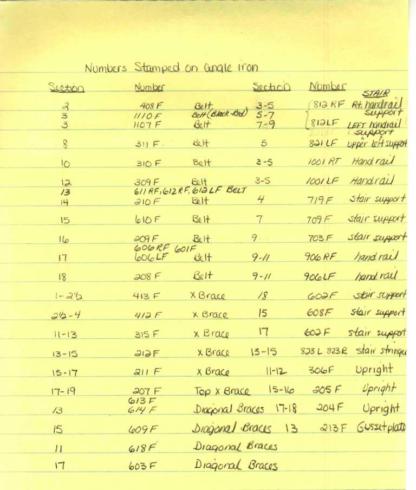 Numbers Stamped on angle Iron
Section Number Section Number STAIR
2 408 F Belt 3-5 812 RF Rt. handrail support
3 1110 F Belt (Black-Bod) 5-7
3 1107 F Belt 7-9 812LF LEFT handrail support
8 311 F Belt 5 821 LF upper left support
10 310 F Belt 3-5 1001 RT Handrail
12 309 F Belt 3-5 1001 LF Handrail
13 611 RF, 612 RF, 612 LF BELT
14 210 F Belt 4 719 F stair support
15 610 F Belt 7 709 F stair support
16 209 F Belt 9 703 F stair support
606 RF 601F
17 606 LF Belt 9-11 906 RF hand rail
18 208 F Belt 9-11 906 LF hand rail
1-2½ 413 F X Brace 18 602 F stair support
2½-4 412 F X Brace 15 608 F stair support
11-13 315 F X Brace 17 602 F stair support
13-15 212 F X Brace 13-15 823 L 823 R stair stringer
15-17 211 F X Brace 11-12 306 F Upright
17-19 207 F Top X Brace 15-16 205 F Upright
613 F
13 614 F Diagonal Braces 17-18 204 F Upright
15 609 F Diagonal Braces 13 213 F Gusset plate
11 618 F Diagonal Braces
17 603 F Diagonal Braces